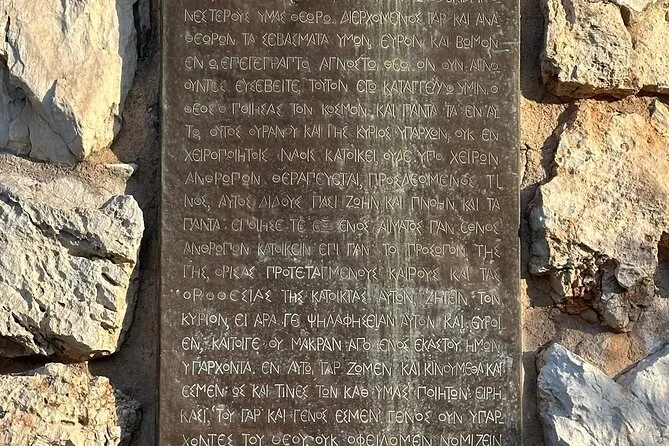 ΝΕΣΤΕΡΟΥΣ ΥΜΑΣ ΘΕΩΡΩ. ΔΙΕΡΧΟΜΕΝΟΣ ΓΑΡ ΚΑΙ ΑΝΑ
ΘΕΩΡΩΝ ΤΑ ΣΕΒΑΣΜΑΤΑ ΥΜΩΝ, ΕΥΡΟΝ ΚΑΙ ΒΩΜΟΝ
ΕΝ Ω ΕΠΕΓΕΓΡΑΠΤΟ, ΑΓΝΩΣΤΩ ΘΕΩ. ΟΝ ΟΥΝ ΑΓΝΟ
ΟΥΝΤΕΣ ΕΥΣΕΒΕΙΤΕ, ΤΟΥΤΟΝ ΕΓΩ ΚΑΤΑΓΓΕΛΛΩ ΥΜΙΝ. Ο
ΘΕΟΣ Ο ΠΟΙΗΣΑΣ ΤΟΝ ΚΟΣΜΟΝ ΚΑΙ ΠΑΝΤΑ ΤΑ ΕΝ ΑΥ
ΤΩ, ΟΥΤΟΣ ΟΥΡΑΝΟΥ ΚΑΙ ΓΗΣ ΚΥΡΙΟΣ ΥΠΑΡΧΩΝ, ΟΥΚ ΕΝ
ΧΕΙΡΟΠΟΙΗΤΟΙΣ ΝΑΟΙΣ ΚΑΤΟΙΚΕΙ, ΟΥΔΕ ΥΠΟ ΧΕΙΡΩΝ
ΑΝΘΡΩΠΩΝ ΘΕΡΑΠΕΥΕΤΑΙ, ΠΡΟΣΔΕΟΜΕΝΟΣ ΤΙ
ΝΟΣ, ΑΥΤΟΣ ΔΙΔΟΥΣ ΠΑΣΙ ΖΩΗΝ ΚΑΙ ΠΝΟΗΝ ΚΑΙ ΤΑ
ΠΑΝΤΑ. ΕΠΟΙΗΣΕ ΤΕ ΕΞ ΕΝΟΣ ΑΙΜΑΤΟΣ ΠΑΝ ΕΘΝΟΣ
ΑΝΘΡΩΠΩΝ ΚΑΤΟΙΚΕΙΝ ΕΠΙ ΠΑΝ ΤΟ ΠΡΟΣΩΠΟΝ ΤΗΣ
ΓΗΣ, ΟΡΙΣΑΣ ΠΡΟΤΕΤΑΓΜΕΝΟΥΣ ΚΑΙΡΟΥΣ ΚΑΙ ΤΑΣ
ΟΡΟΘΕΣΙΑΣ ΤΗΣ ΚΑΤΟΙΚΙΑΣ ΑΥΤΩΝ, ΖΗΤΕΙΝ ΤΟΝ
ΚΥΡΙΟΝ, ΕΙ ΑΡΑ ΓΕ ΨΗΛΑΦΗΣΕΙΑΝ ΑΥΤΟΝ ΚΑΙ ΕΥΡΟΙ
ΕΝ, ΚΑΙΤΟΙΓΕ ΟΥ ΜΑΚΡΑΝ ΑΠΟ ΕΝΟΣ ΕΚΑΣΤΟΥ ΗΜΩΝ
ΥΠΑΡΧΟΝΤΑ. ΕΝ ΑΥΤΩ ΓΑΡ ΖΩΜΕΝ ΚΑΙ ΚΙΝΟΥΜΕΘΑ ΚΑΙ
ΕΣΜΕΝ, ΩΣ ΚΑΙ ΤΙΝΕΣ ΤΩΝ ΚΑΘ ΥΜΑΣ ΠΟΙΗΤΩΝ ΕΙΡΗ
ΚΑΣΙ, ΤΟΥ ΓΑΡ ΚΑΙ ΓΕΝΟΣ ΕΣΜΕΝ. ΓΕΝΟΣ ΟΥΝ ΥΠΑΡ
ΧΟΝΤΕΣ ΤΟΥ ΘΕΟΥ ΟΥΚ ΟΦΕΙΛΟΜΕΝ ΝΟΜΙΖΕΙΝ